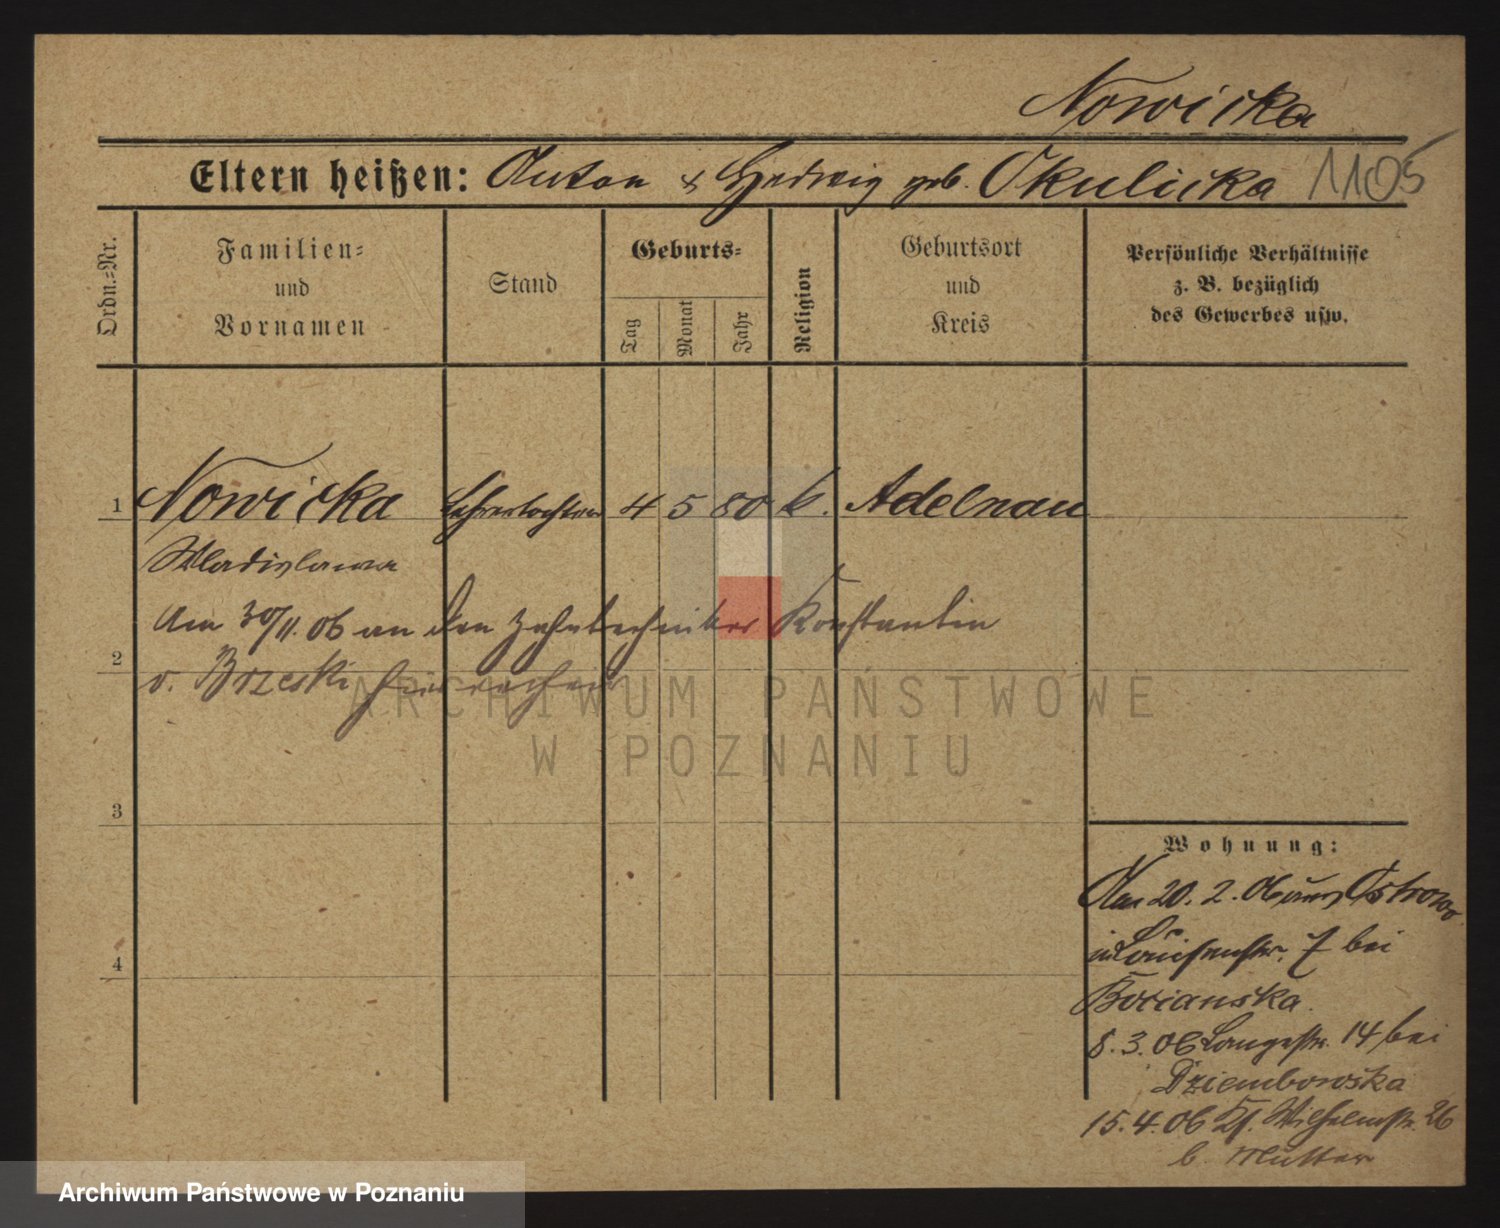 Nowicka
Eltern heißen: Anton & Hedwig geb. Okulicka 1105
Ordn.=Nr.
Familien=
und
Vornamen
Stand
Geburts=
Tag
Monat
Jahr
Religion
Geburtsort
und
Kreis
Persönliche Verhältnisse
z. B. bezüglich
des Gewerbes usw.
1 Nowicka Lehrertochter 4 5 80 k. Adelnau
Wladislawa
Am 30/11.06 an den Zahntechniker Konstantin
2
v. Brzeski
ARCHIWUM PAŃSTWOWE
W POZNANIU
3
4
Wohnung:
Am 20. 2. 06 aus Ostrowo
in Louisenstr. 7 bei
Bocianska
8. 3. 06 Langestr. 14 bei
Dziembowska
15. 4. 06 Kl. Wilhelmstr. 26
b. Mutter
Archiwum Państwowe w Poznaniu